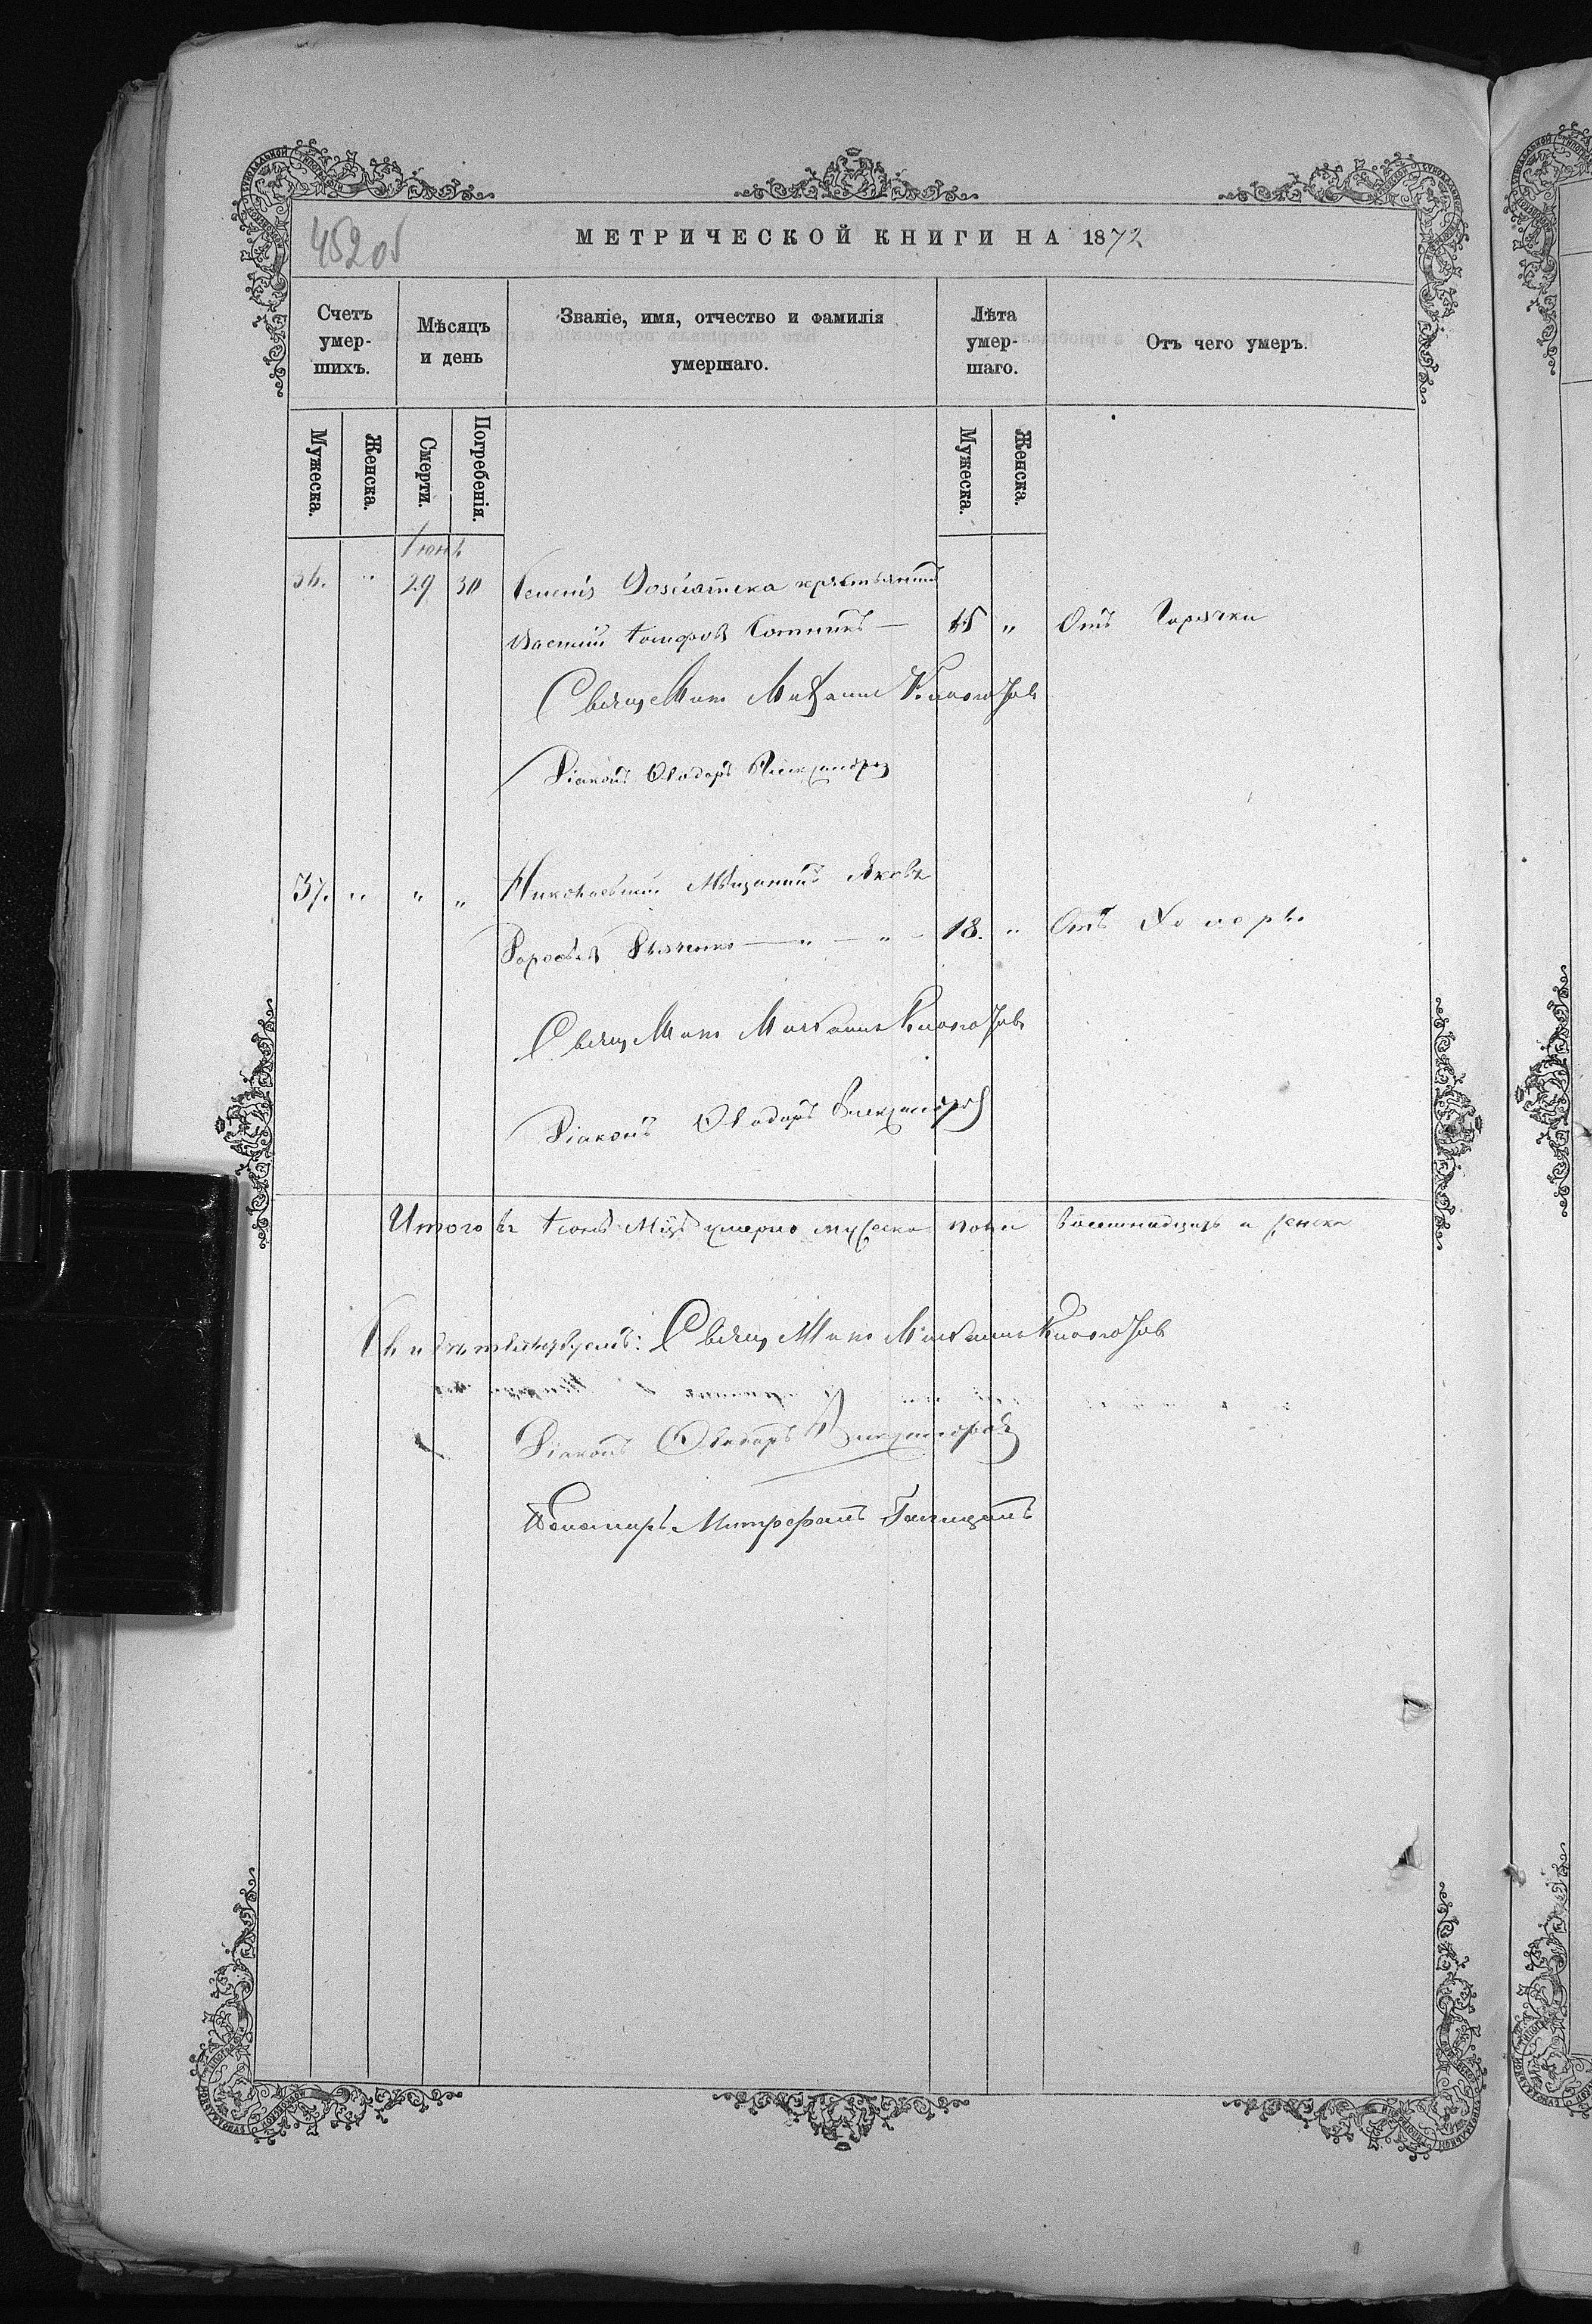 452 об
МЕТРИЧЕСКОЙ КНИГИ НА 1872
Счетъ умер- шихъ.
Мѣсяцъ и день
Званіе, имя, отчество и фамилія умершаго.
Лѣта умер- шаго.
Отъ чего умеръ.
Мужеска. Женска. Смерти. Погребенія. Мужеска. Женска.
Іюнь
36. " 29 30 крестьянинъ
65 " Отъ Горячки
Священникъ Михаилъ
Діаконъ Ѳеодоръ Александровъ
37. " " " Николаевскій Мѣщанинъ Яковъ
" " 18. " Отъ Холеры.
Священникъ Михаилъ
Діаконъ Ѳеодоръ Александровъ
Итого въ Іюнѣ м-цѣ умерло мужеска пола восемнадцать а женска
Свидѣтельствуемъ: Священникъ Михаилъ
Діаконъ Ѳеодоръ Александровъ
Пономарь Митрофанъ